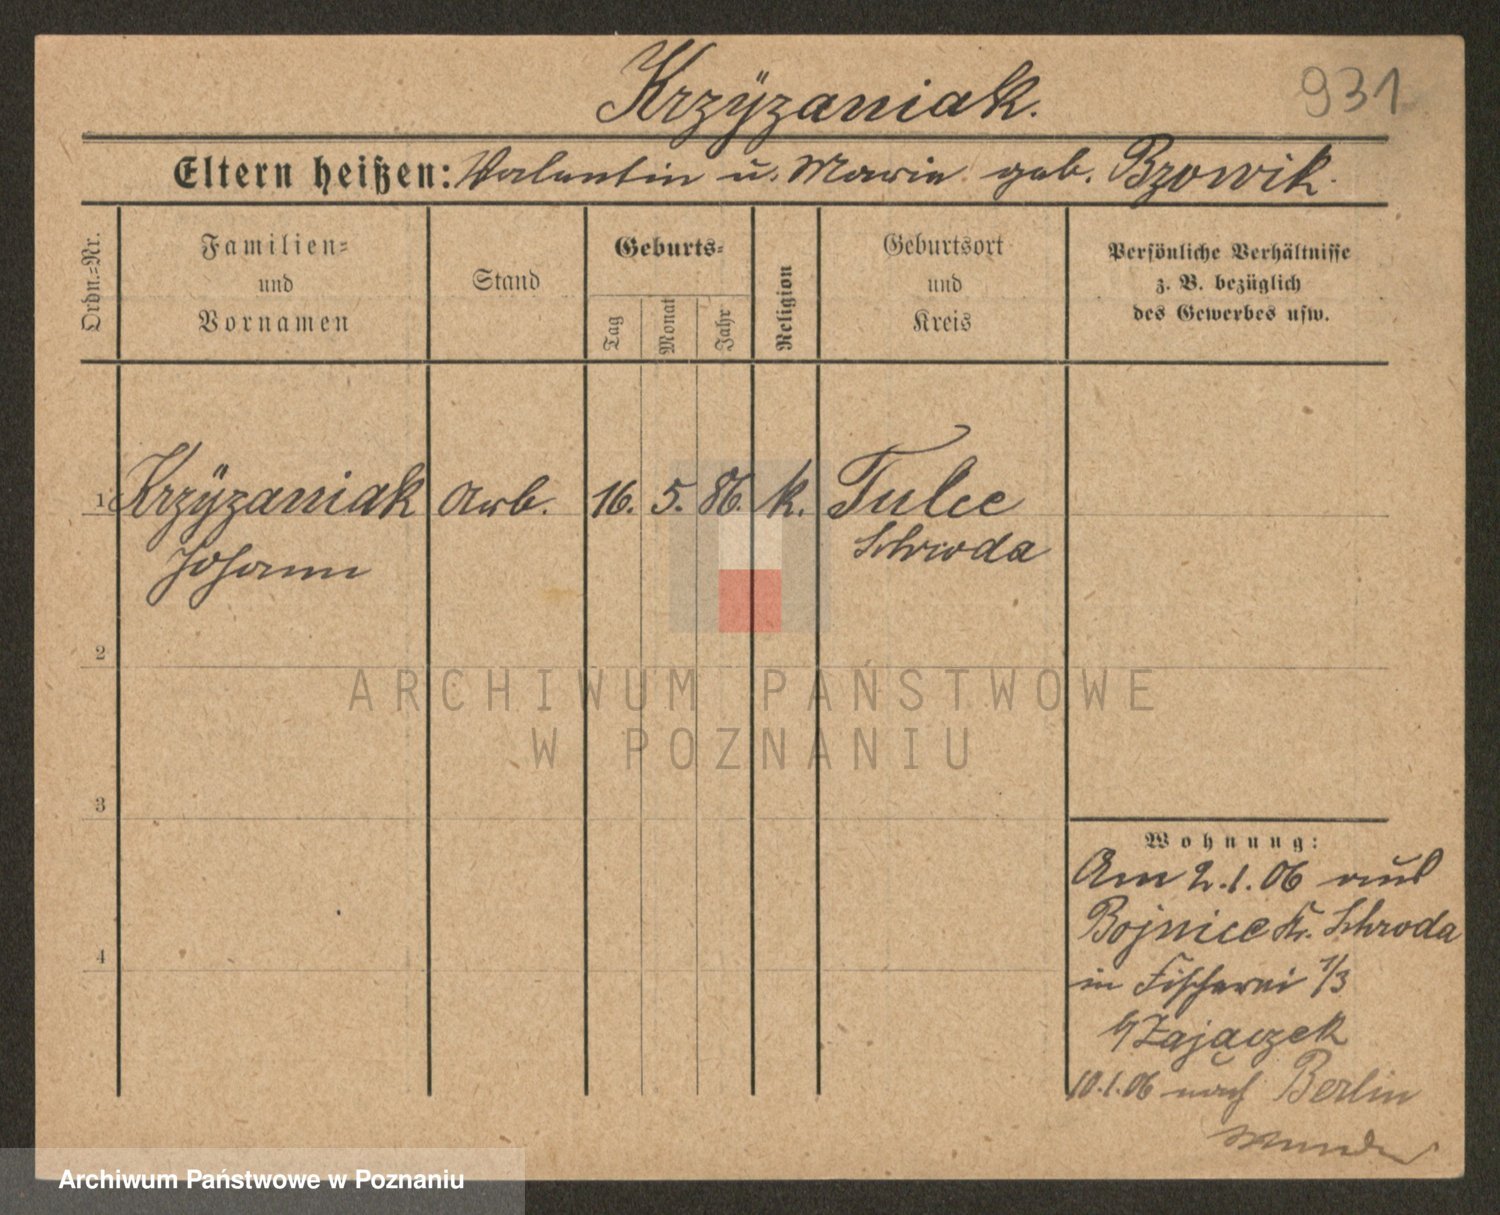 Krzÿzaniak.
931
Eltern heißen: Valentin u. Marie geb. Bzowik.
Ordn.=Nr.
Familien=
und
Vornamen
Stand
Geburts=
Tag
Monat
Jahr
Religion
Geburtsort
und
Kreis
Persönliche Verhältnisse
z. B. bezüglich
des Gewerbes usw.
1 Krzÿzaniak Arb. 16. 5. 86. k. Tulce
Johann Schroda
2
ARCHIWUM PAŃSTWOWE
W POZNANIU
3
Wohnung:
Am 2.1.06 aus
Bojnice Kr. Schroda
4
in Fischerei 1/3
b/ Zajączek
10.1.06 nach Berlin
Archiwum Państwowe w Poznaniu